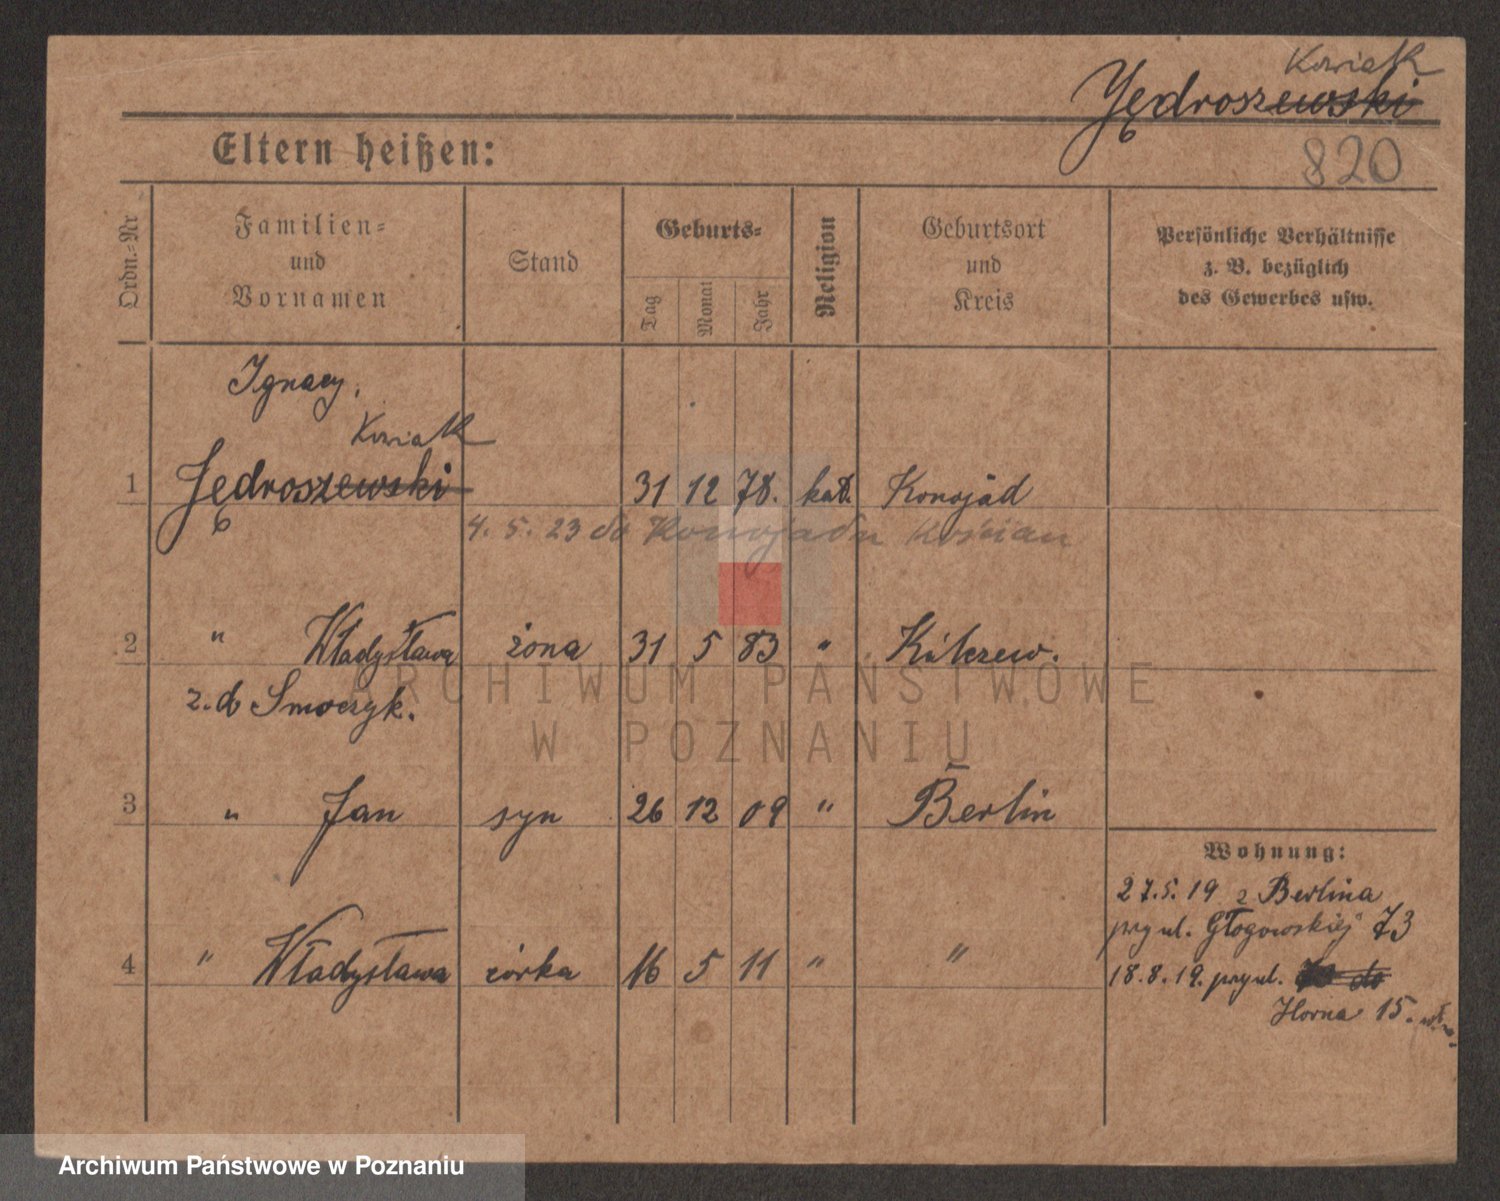 Kowiak
Jędroszewski
820
Eltern heißen:
Ordn.=Nr
Familien=
und
Vornamen
Stand
Geburts=
Tag
Monat
Jahr
Religion
Geburtsort
und
Kreis
Persönliche Verhältnisse
z. B. bezüglich
des Gewerbes usw.
Ignacy,
Kowiak
1 Jędroszewski 31 12 78. kat. Konojad
4. 5. 23 do Konojadu Kościan
2 " Władysława żona 31 5 83 "
z. d Smoczyk.
3 " Jan syn 26 12 09 " Berlin
Wohnung:
27.5.19 z Berlina
przy ul. Głogowskiej 73
4 " Władysława córka 16 5 11 " "
18.8.19. przy ul.
15.
ARCHIWUM PAŃSTWOWE
W POZNANIU
Archiwum Państwowe w Poznaniu